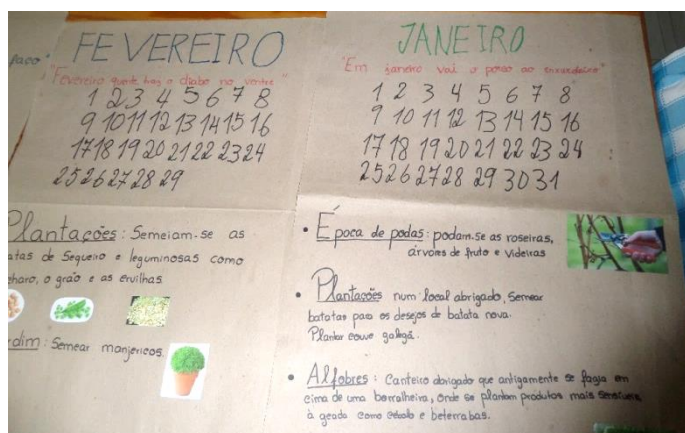 FEVEREIRO
"Fevereiro quente traz o diabo no ventre"
1 2 3 4 5 6 7 8
9 10 11 12 13 14 15 16
17 18 19 20 21 22 23 24
25 26 27 28 29
Plantações: Semeiam-se as
atas de Sequeiro e leguminosas como
charo, o grão e as ervilhas
dim: Semear manjericos.
JANEIRO
"Em janeiro vai o porco ao fumeiro"
1 2 3 4 5 6 7 8
9 10 11 12 13 14 15 16
17 18 19 20 21 22 23 24
25 26 27 28 29 30 31
• Época de podas: podam-se as roseiras,
árvores de fruto e videiras
• Plantações num local abrigado, semear
batatas para os desejos de batata nova.
Plantar couve galega.
• Alfobres: Canteiro abrigado que antigamente se fazia em
cima de uma borralheira, onde se plantam produtos mais sensíveis
à geada como cebola e beterrabas.